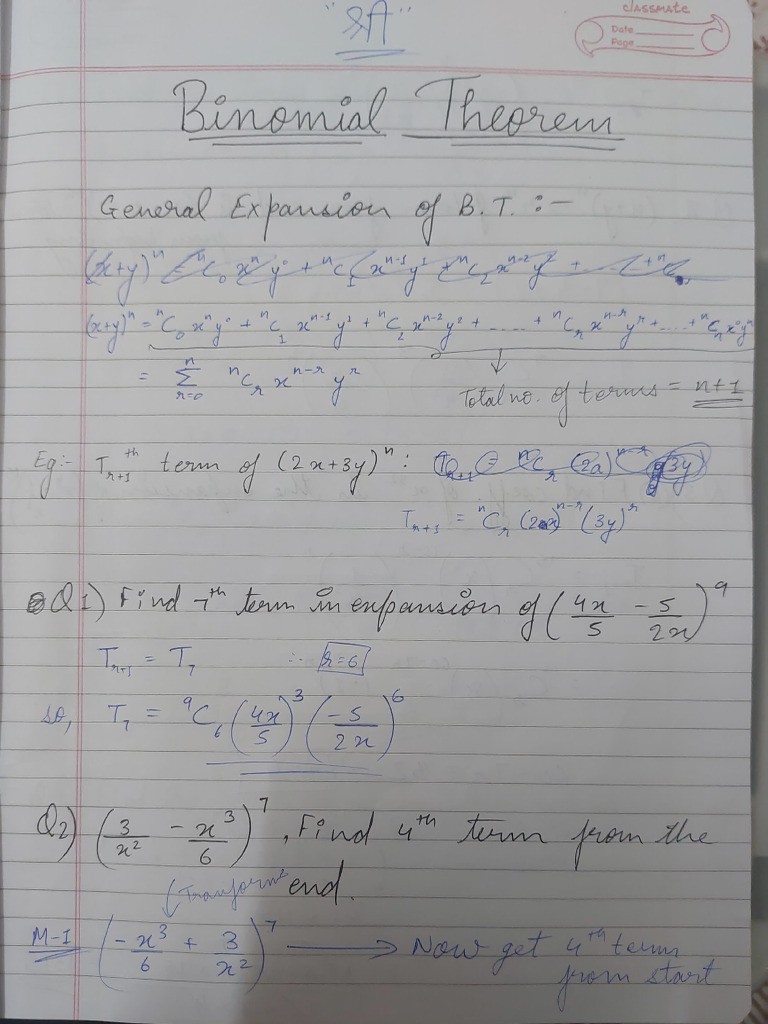 "श्री"
classmate
Date
Page
Binomial Theorem
General Expansion of B.T. :-
(x+y)ⁿ = ⁿC₀ xⁿy⁰ + ⁿC₁ xⁿ⁻¹y¹ + ⁿC₂ xⁿ⁻²y² + ..... + ⁿCᵣ xⁿ⁻ʳyʳ + ..... + ⁿCₙ x⁰yⁿ
= Σ_{r=0}^{n} ⁿCᵣ xⁿ⁻ʳ yʳ
Total no. of terms = n+1
Eg:- T_{r+1}^{th} term of (2x+3y)ⁿ :
T_{r+1} = ⁿCᵣ (2x)ⁿ⁻ʳ (3y)ʳ
Q1) Find 7th term in expansion of (4x/5 - 5/2x)⁹
T_{r+1} = T₇ ∴ r=6
so, T₇ = ⁹C₆ (4x/5)³ (-5/2x)⁶
Q2) (3/x² - x³/6)⁷, Find 4th term from the
end.
M-I (-x³/6 + 3/x²)⁷ → Now get 4th term
from start